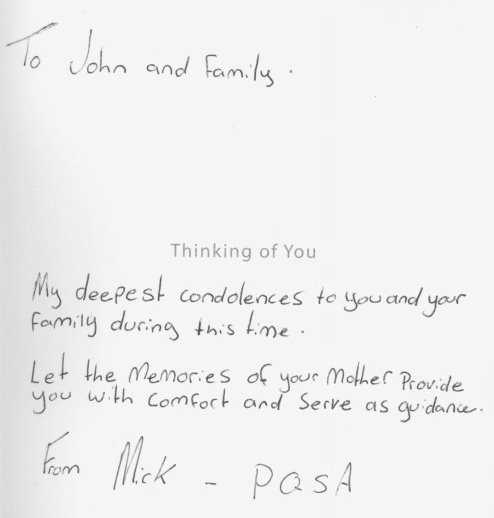 To John and Family.
Thinking of You
My deepest condolences to you and your
family during this time.
Let the Memories of your Mother Provide
you with Comfort and Serve as guidance.
From Mick - PQSA